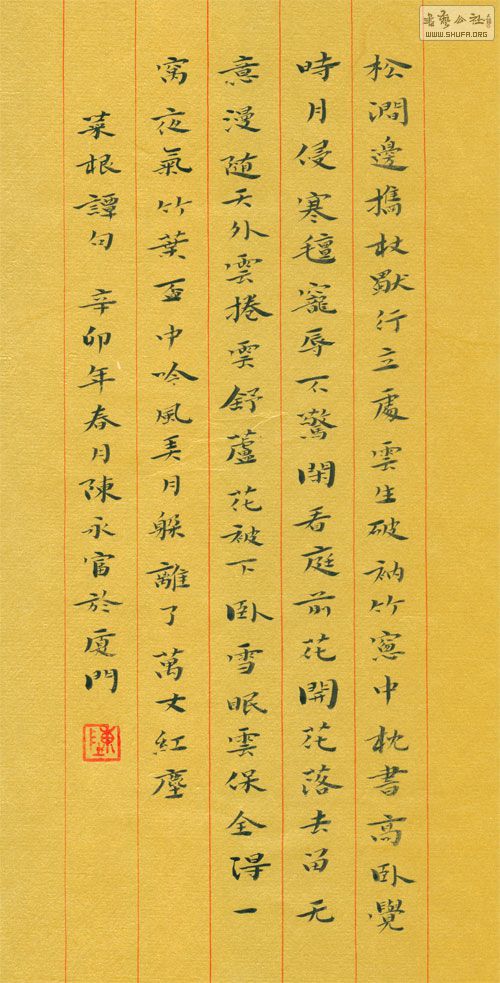 松澗邊攜杖獨行立處雲生破衲竹窓中枕書高臥覺
時月侵寒氊寵辱不驚閑看庭前花開花落去留无
意漫隨天外雲捲雲舒蘆花被下臥雪眠雲保全得一
窩夜氣竹葉盃中吟風弄月躲離了萬丈紅塵
菜根譚句 辛卯年春月陳永富於厦門
陳
WWW.SHUFA.ORG